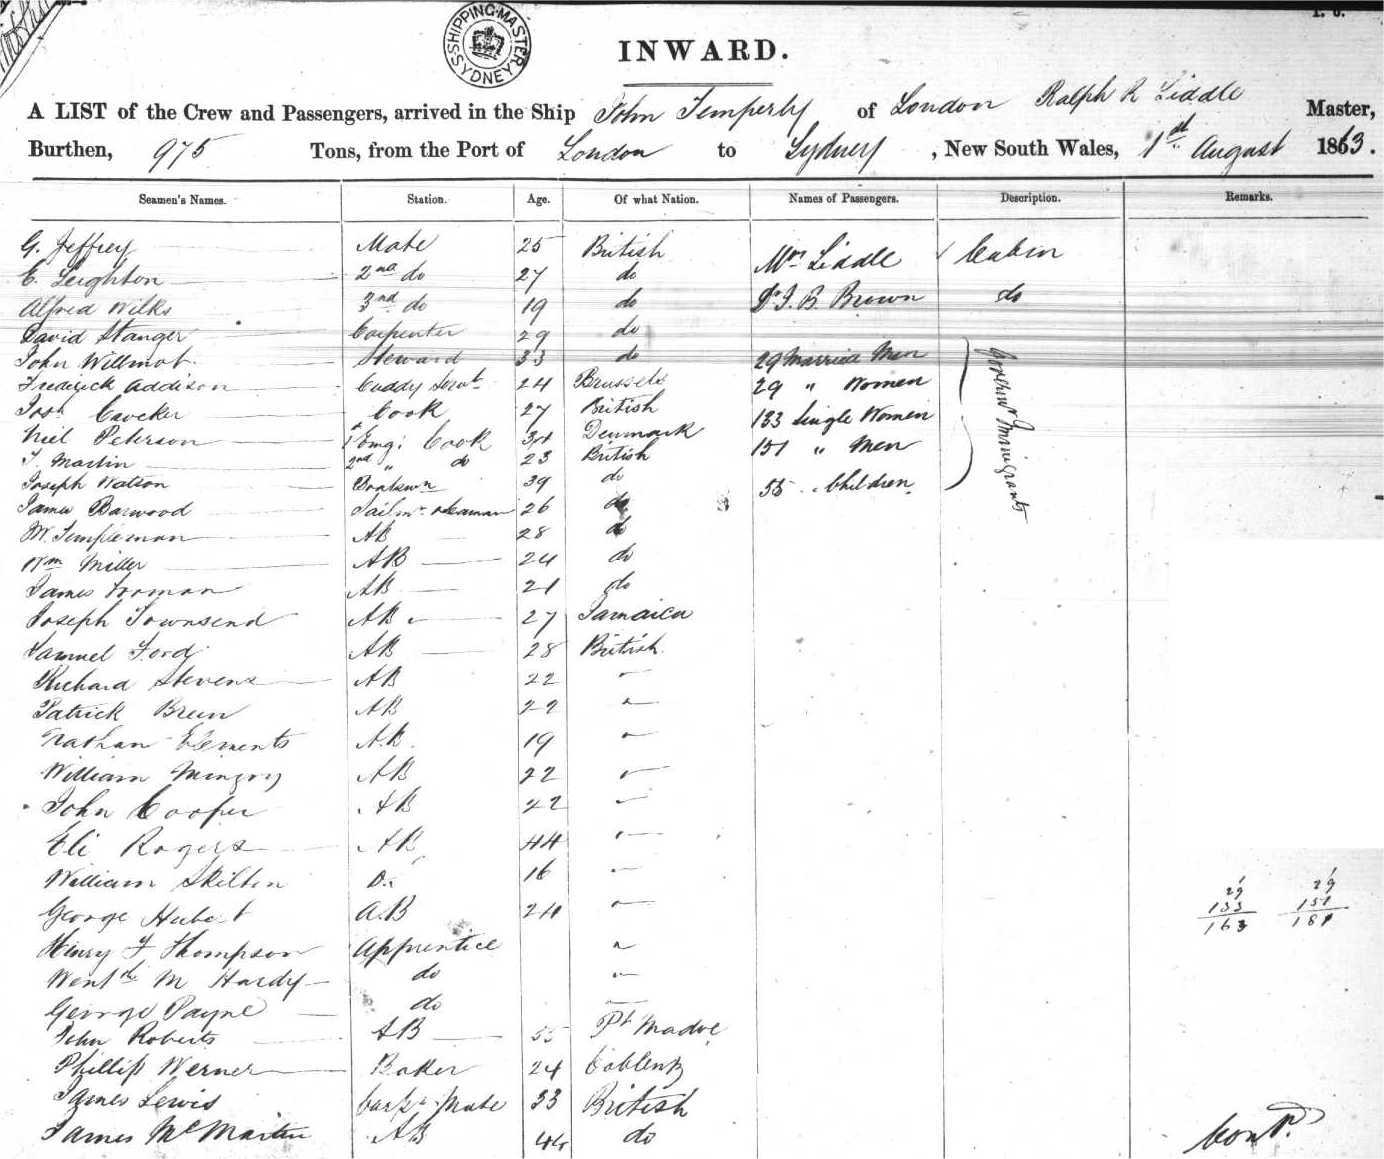 SHIPPING MASTER SYDNEY
INWARD.
A LIST of the Crew and Passengers, arrived in the Ship John Temperly of London Ralph R Liddle Master,
Burthen, 975 Tons, from the Port of London to Sydney, New South Wales, 1st August 1863.
Seamen's Names. Station. Age. Of what Nation. Names of Passengers. Description. Remarks.
G. Jeffrey Mate 25 British Mrs Liddle Cabin
C. Leighton 2nd do 27 do
Alfred Wilks 3rd do 19 do Dr J. B. Brown do
David Stanger Carpenter 29 do
John Willmot Steward 33 do 29 Married Men
Fredrick Addison Cuddy Servt 24 Brussels 29 " Women
Josh Crocker Cook 27 British 133 Single Women
Niel Peterson 1 Emg: Cook 34 Denmark 151 " Men
J. Martin 2nd " do 23 British
Joseph Watson Boatswn 39 do 55 Children
Government Immigrants
James Barwood Sailmr Seaman 26 do
W. Templeman AB 28 do
Wm Miller AB 24 do
James Forman AB 21 do
Joseph Townsend AB 27 Jamaica
Samuel Ford AB 28 British
Richard Stevens AB 22 "
Patrick Breen AB 22 "
Nathan Elements AB 19 "
William AB 22 "
John Cooper AB 22 "
Eli Rogers AB 44 "
William Skilten 16 "
29 29
George Hubert A.B 24 " 133 151
163 181
Henry F Thompson Apprentice "
Wentth M Hardy do "
George Payne do
John Roberts AB 55 Pt Madoc
Phillip Werner Baker 24 Coblentz
James Lewis Carpr Mate 33 British
James McMartin AB 44 do
Contd.